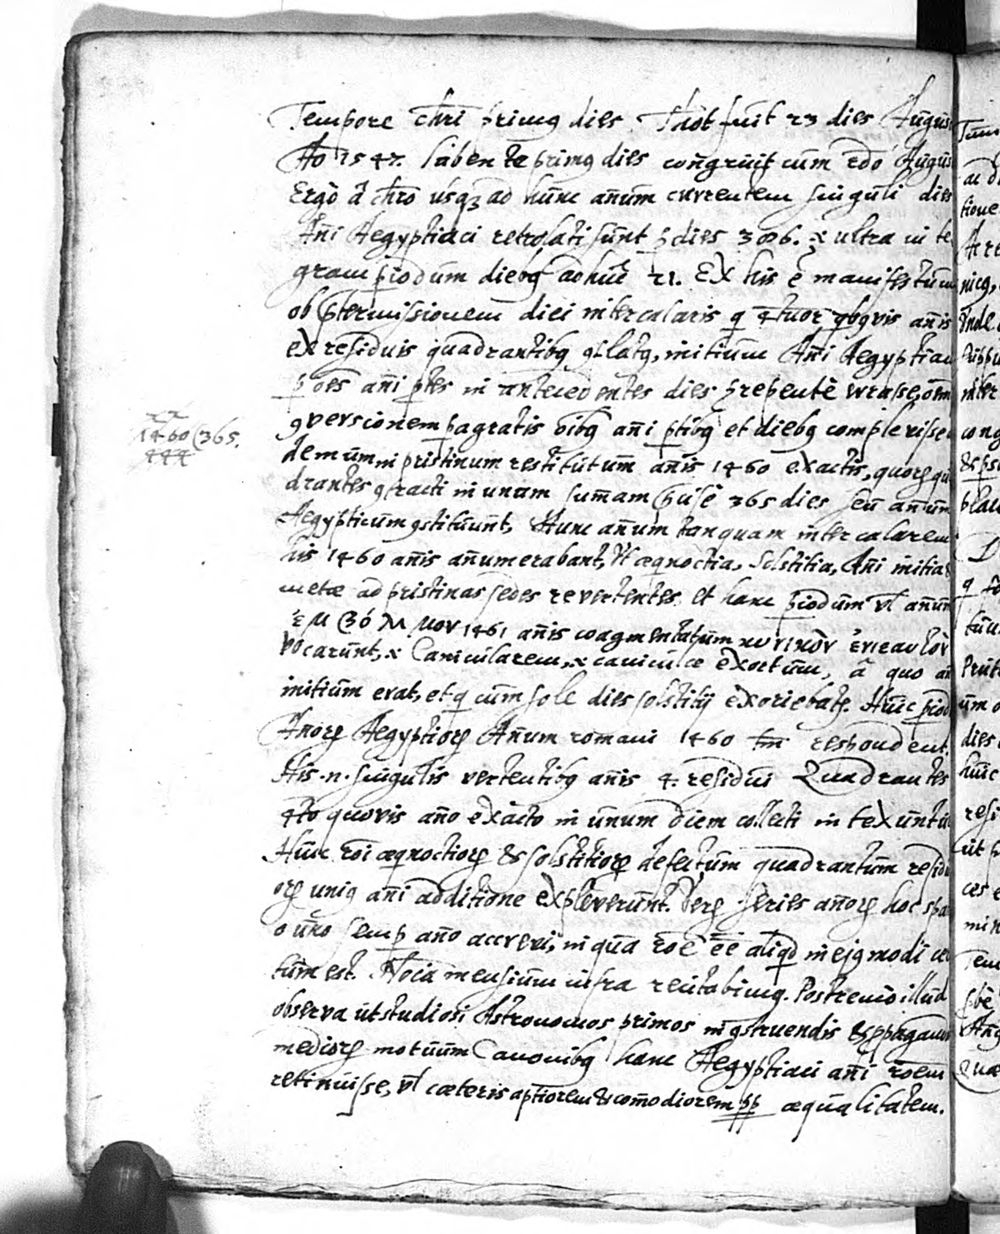 Tempore chri primq dies Thot fuit 23 dies Augus
Ao 1547. labente primq dies congruit cum 2do Augus
Ergo a chro usq3 ad hunc anum currentem singuli dies
Ani Aegyptiaci retrolati sunt p dies 386. & ultra in te
gram piodum diebq adhuc 21. Ex his e manifestum
ob ptermissionem diei intercalaris q 4tuor qbqvis anis
ex residuis quadrantibq 9flatq, initium Ani Aegyptiaci
p oes ani ptes in antecedentes dies prepente
9versionem pagratis oibq ani ptibq et diebq complevisse
demum in pristinum restitutum anis 1460 exactis, quorq qua
drantes 9tracti in unam summam pduse 365 dies seu anum
Aegypticum 9stituunt, Hunc anum tanquam intercalarem
his 1460 anis anumerabant, Vt aeqnoctia, Solstitia, Ani initia
metae ad pristinas sedes revertentes, et hanc piodum vl anum
1461 anis coagmentatum
vocarunt, & Canicularem, & caniculae exortum, a quo an
initium erat, et q cum sole dies solstitij exoriebatr. Huic piod
Anorq Aegyptiorq Anum romani 1460 tm respondent.
His .n. singulis vertentibq anis 4. residui Quadrantes
4to quovis ano exacto in unum diem collecti intexuntur
Hinc roi aeqnoctiorq & solstitiorq defectum quadrantum residu
orq uniq ani additione expleverunt. Verq series anorq hoc spa
o uno semp ano accrevi, in qua roe ee aliqd in ejqmodi
tum est. Noia mensium infra recitabimq. Postremo illud
observa ut studiosi Astronomos primos in 9struendis &
mediorq motuum Canonibq hanc Aegyptiaci ani roem
retinuisse, vl caeteris aptiorem & comodiorem pp aequalitatem.
1460 (365.
444